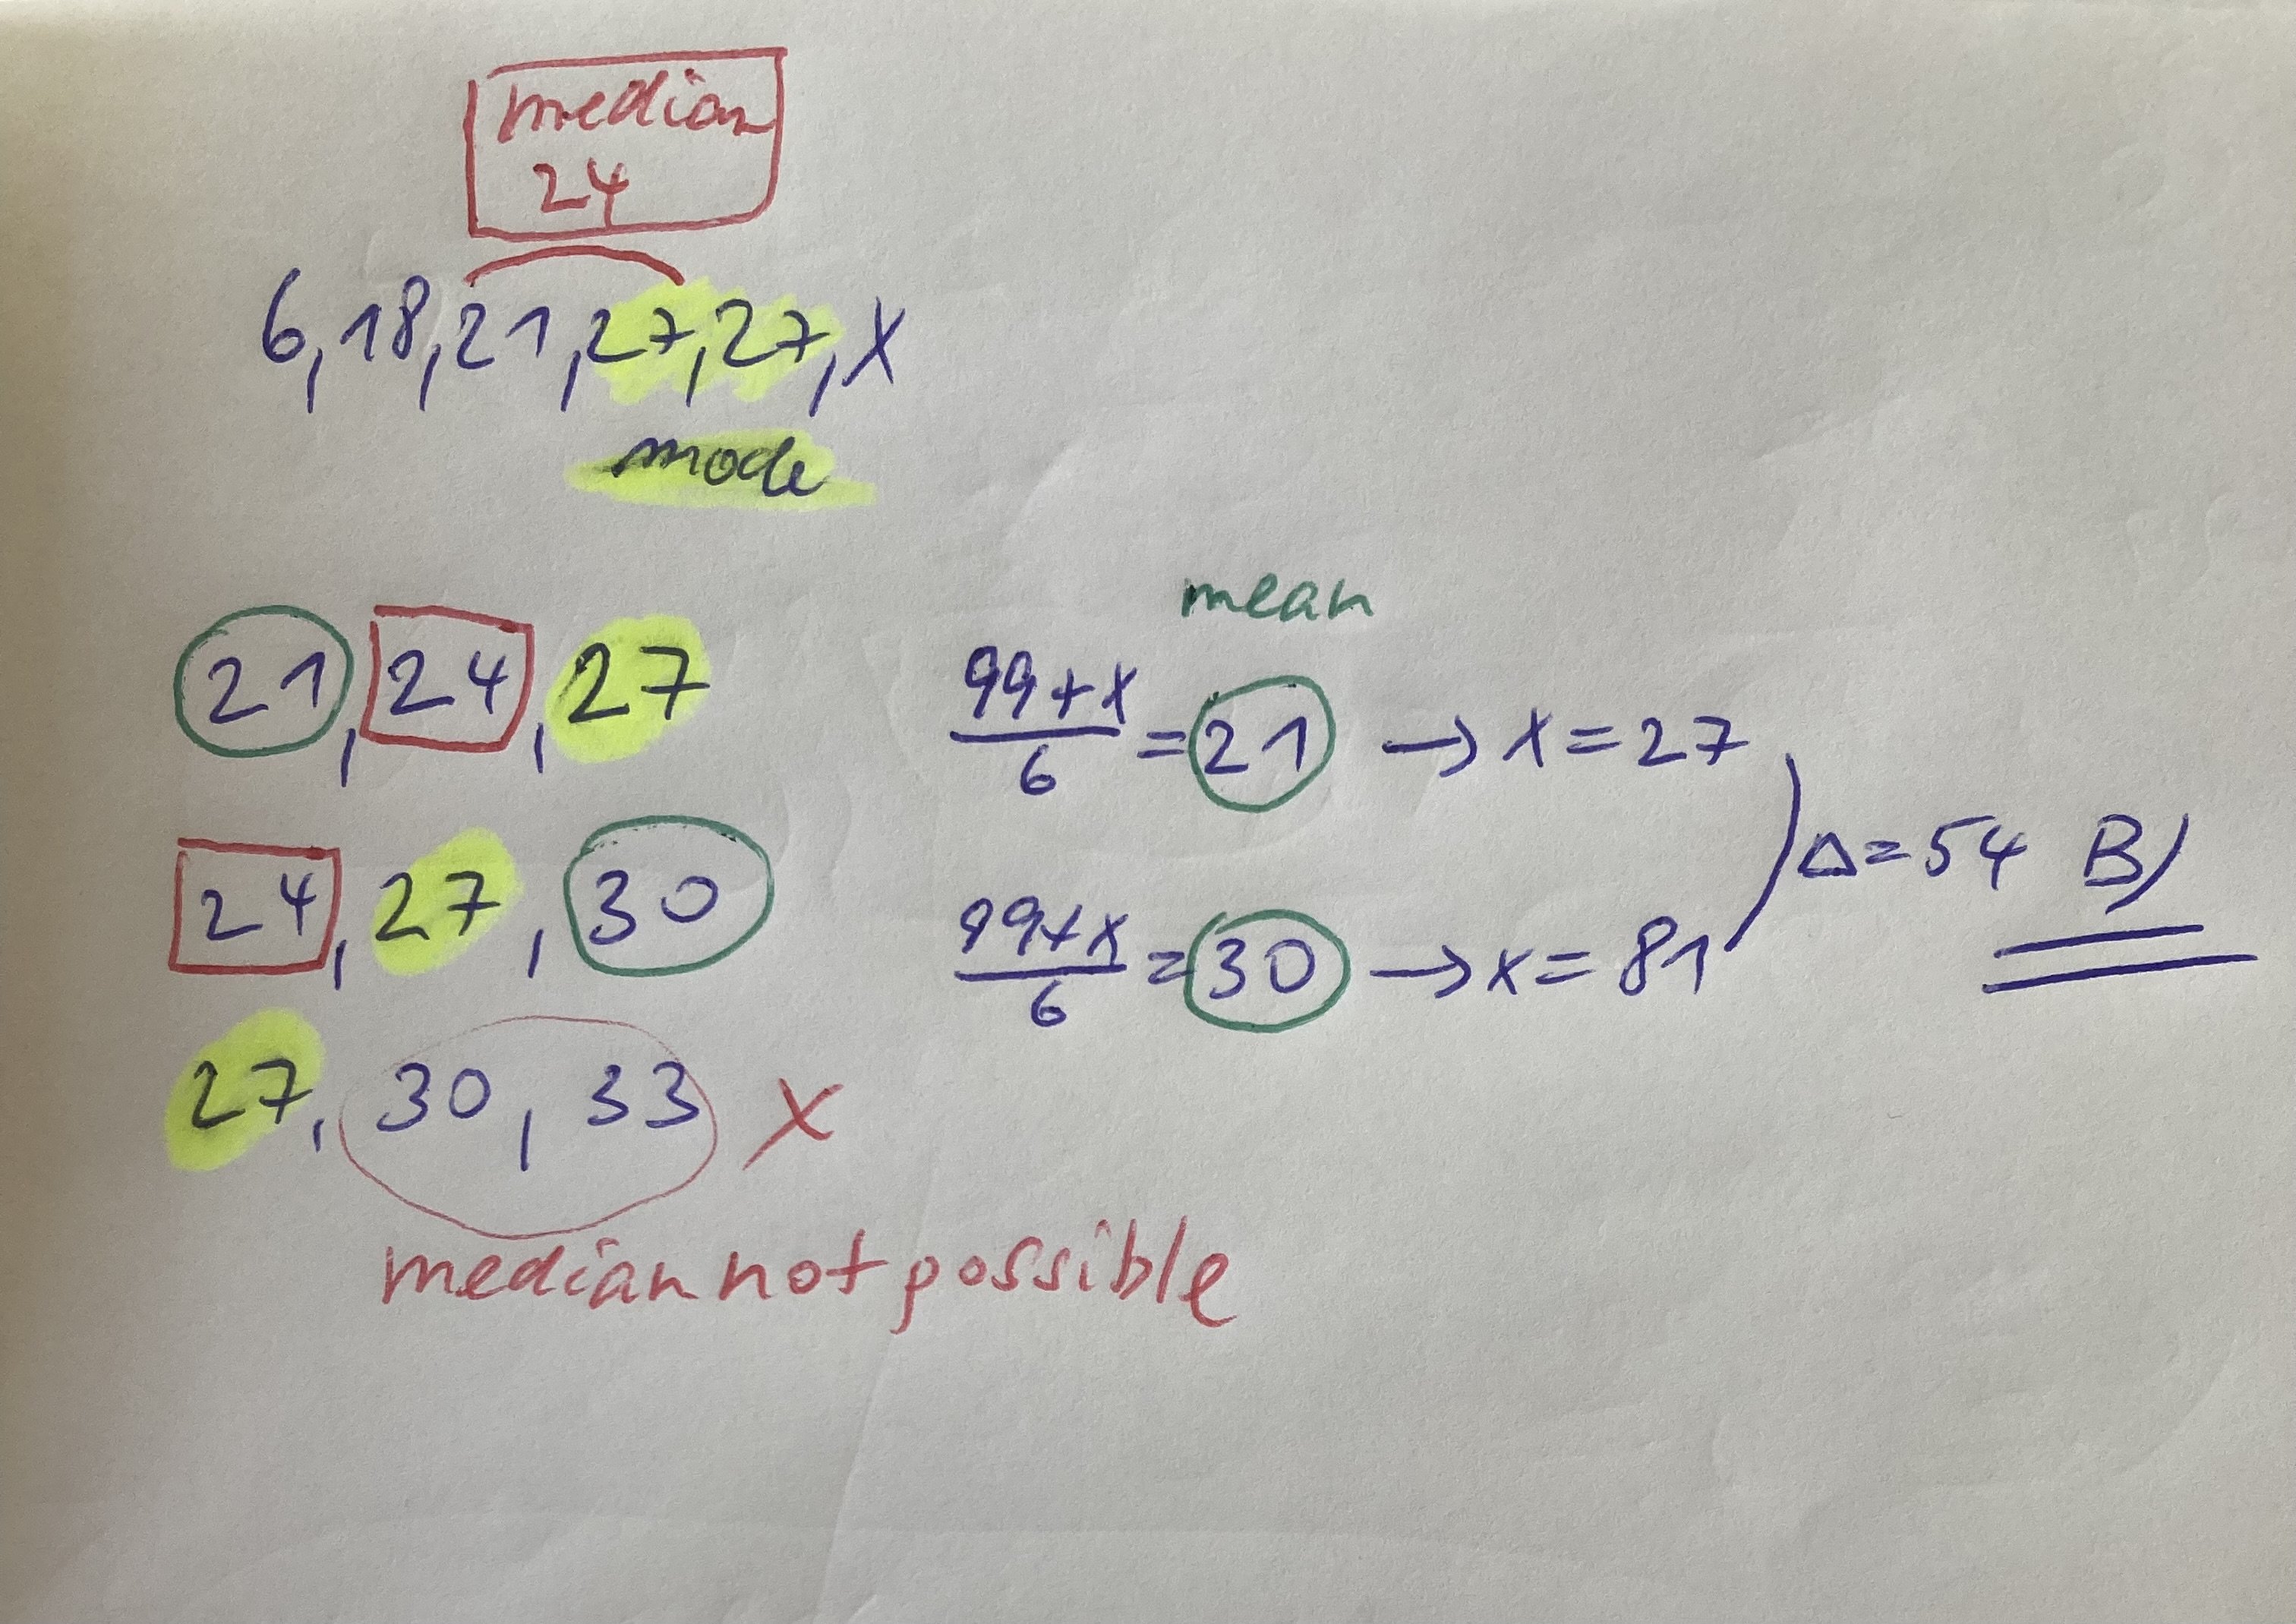 median
24
6, 18, 21, 27, 27, X
mode
mean
21, 24, 27
99+x/6 = 21 → x = 27
Δ = 54 B)
24, 27, 30
99+x/6 = 30 → x = 81
27, 30, 33 X
median not possible